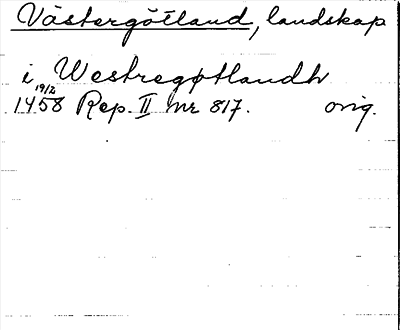 Västergötland, landskap
i Westregøtlandh
19/2
1458 Rep. II nr 817. orig.